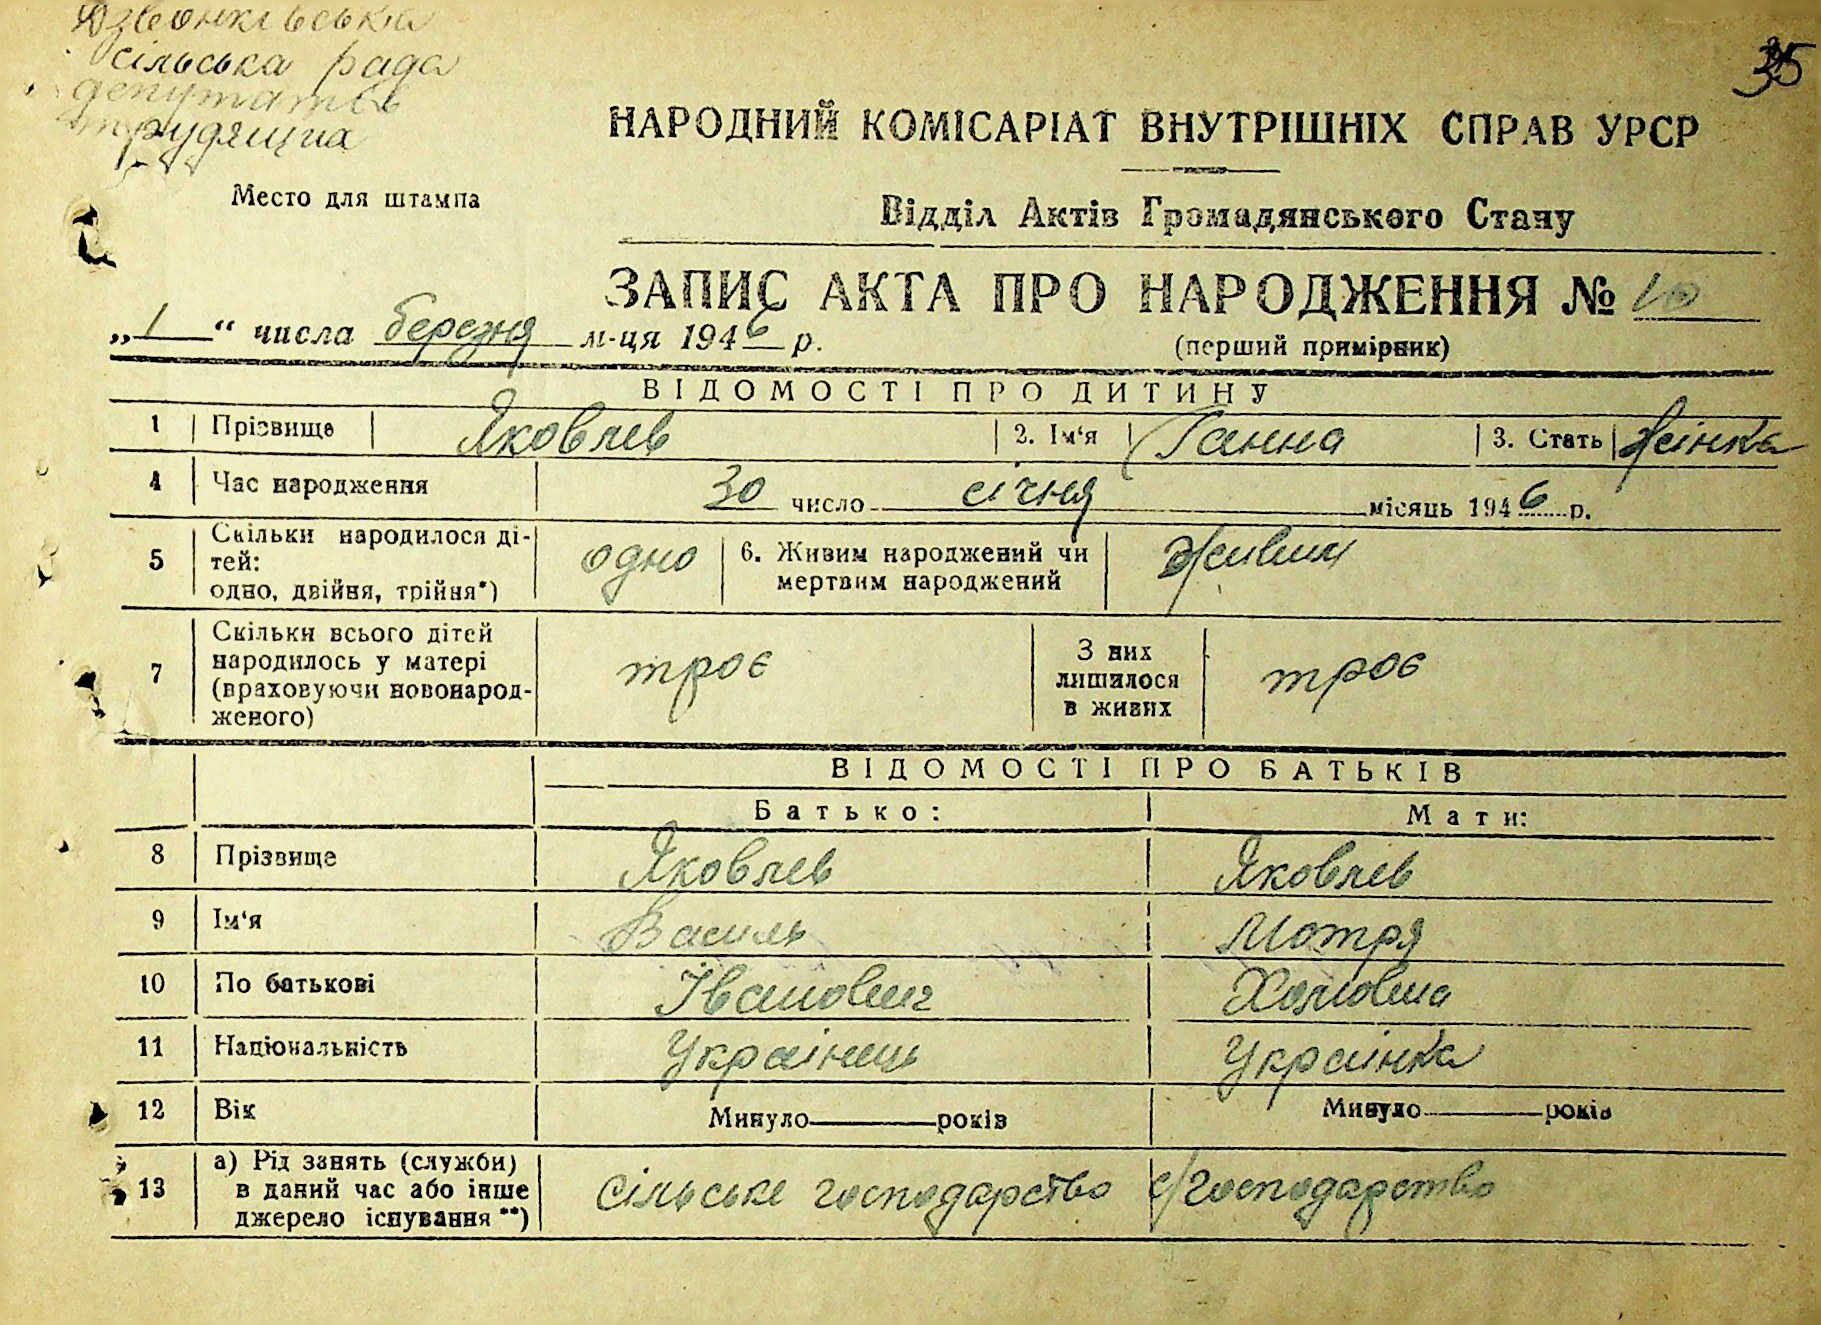 Дзвонківська
сільська рада
депутатів
трудящих
35
НАРОДНИЙ КОМІСАРІАТ ВНУТРІШНІХ СПРАВ УРСР
Место для штампа
Відділ Актів Громадянського Стану
ЗАПИС АКТА ПРО НАРОДЖЕННЯ № 10
„1“ числа березня м-ця 1946 р.
(перший примірник)
ВІДОМОСТІ ПРО ДИТИНУ
1 Прізвище Яковлев 2. Ім‘я Ганна 3. Стать Жінка
4 Час народження 30 число січня місяць 1946 р.
5 Скільки народилося ді-
тей:
одно, двійня, трійня*)
одно
6. Живим народжений чи
мертвим народжений
Живим
7 Скільки всього дітей
народилось у матері
(враховуючи новонарод-
женого)
троє
З них
лишилося
в живих
троє
ВІДОМОСТІ ПРО БАТЬКІВ
Батько: Мати:
8 Прізвище Яковлев Яковлев
9 Ім‘я Василь Мотря
10 По батькові Іванович
11 Національність Українець Українка
12 Вік Минуло років Минуло років
13 а) Рід занять (служби)
в даний час або інше
джерело існування **)
Сільське господарство с/господарство